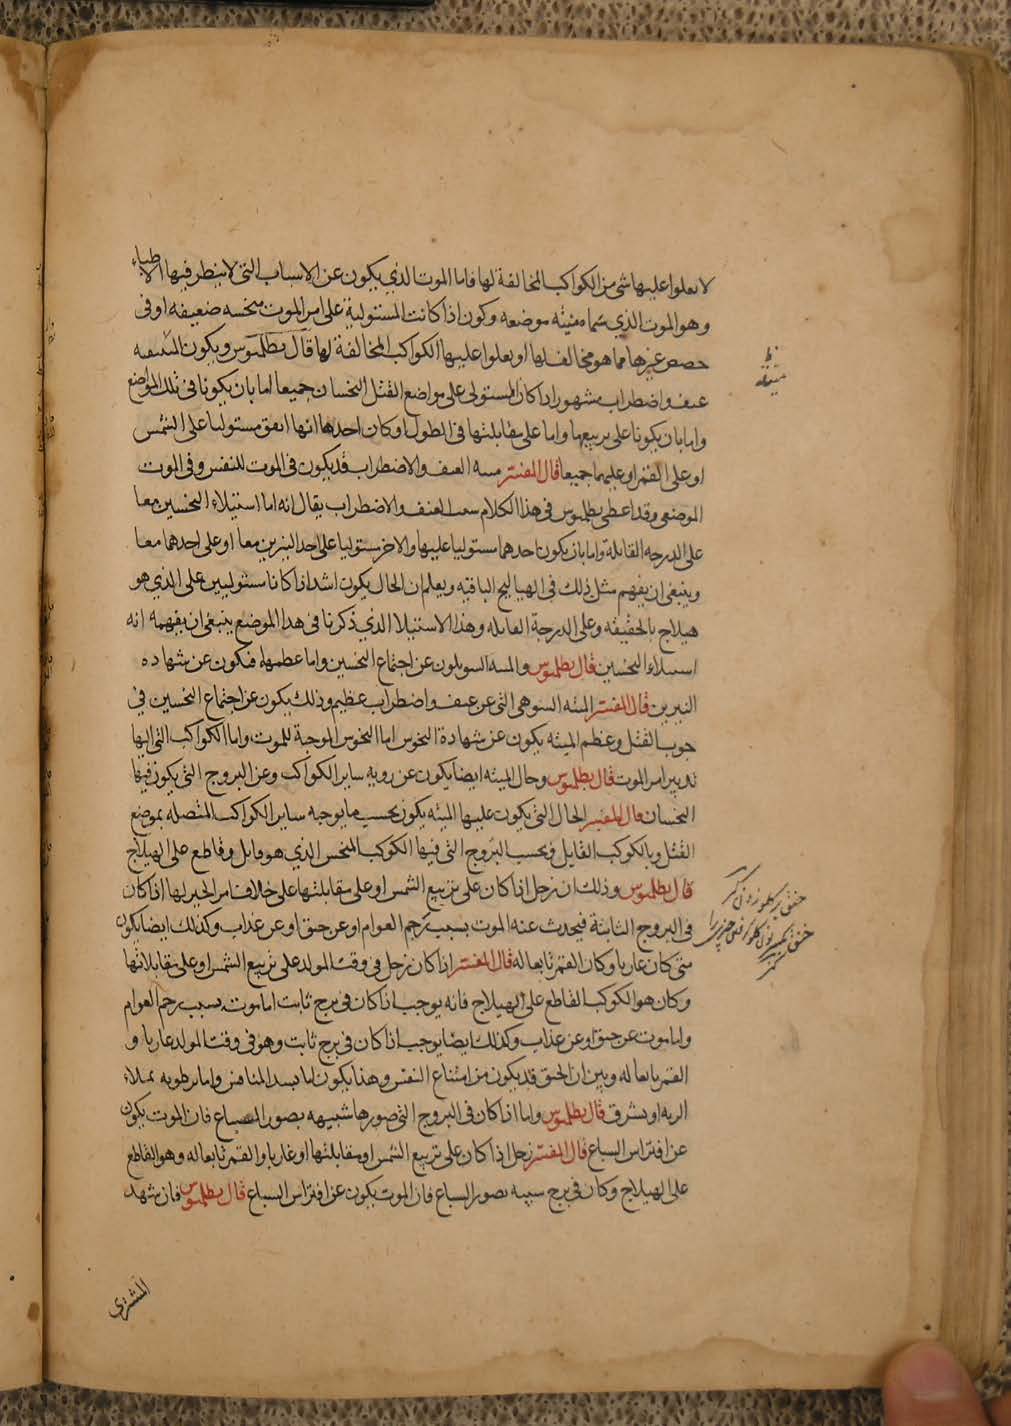 لا يعلوا عليها شى من الكواكب المخالفة لها فاما الموت الذي يكون عن الاسباب التى لا ينظر فيها الاطباء
وهو الموت الذى سماه ميتة موضعه وكون اذا كانت المستولية على امر الموت منحسه ضعيفه او فى
حصص غيرها مما هو مخالف لها او يعلوا عليها الكواكب المخالفة لها قال بطلميوس ويكون
عنف واضطراب مشهور اذا كان المستولى على مواضع القتل النحسان جميعا اما بان يكونا فى تلك المواضع
واما بان يكونا على تربيعها واما على مقابلتها فى الطول وكان احدهما انها اتفق مستوليا على الشمس
او على القمر او عليهما جميعا قال المفسر العنف والاضطراب قد يكون فى الموت للنفس وفى الموت
الموضعى وقد اعطى بطلميوس فى هذا الكلام سبب العنف والاضطراب يقال انه اما استيلاء النحسين معا
على الدرجه القابلة واما بان يكون احدهما مستوليا عليها والاخر مستوليا على احد النيرين معا او على احدهما معا
وينبغى ان يفهم مثل ذلك فى الهياليج الباقيه ويعلم ان الحال يكون اشد اذا كانا مستوليين على الذي هو
هيلاج بالحقيقه وعلى الدرجة القابله وهذا الاستيلا الذي ذكرنا فى هذا الموضع ينبغى ان يفهمه انه
استيلاء النحسين قال بطلميوس والميته السو يكون عن اجتماع النحسين واما عظمها فيكون عن شهاده
النيرين قال المفسر الميته السو هى التى عن عنف واضطراب عظيم وذلك يكون عن اجتماع النحسين فى
القتل وعظم الميته يكون عن شهادة النحوس اما النحوس الموجبة للموت واما الكواكب التى اليها
تدبير امر الموت قال بطلميوس وحال الميته ايضا يكون عن روية ساير الكواكب وعن البروج التى يكون فيها
النحسان قال المفسر الحال التى يكون عليها الميته يكون بحسب ما يوجبه ساير الكواكب المتصله بموضع
القتل وبالكوكب القابل وبحسب البروج التى فيها الكوكب المنحس الذي هو قابل وقاطع على الهيلاج
قال بطلميوس وذلك ان زحل اذا كان على تربيع الشمس او على مقابلتها على خلاف من الحيز لها اذا كان
فى البروج الثابتة فيحدث عنه الموت بسبب رجم العوام او عن خنق او عن عذاب وكذلك ايضا يكون
متى كان غاربا وكان القمر تابعا له قال المفسر اذا كان زحل فى وقت المولد على تربيع الشمس او على مقابلاتها
وكان هو الكوكب القاطع على الهيلاج فانه يوجب اذا كان فى برج ثابت اما موت بسبب رجم العوام
واما موت عن خنق او عن عذاب وكذلك ايضا يوجب اذا كان فى برج ثابت وهو فى وقت المولد غاربا و
القمر تابعا له وبين ان الخنق قد يكون من امتناع النفس وهذا يكون اما بسد المنافس واما برطوبه تملاء
الريه او بشرق قال بطلميوس واما اذا كان فى البروج التى صورها شبيهه بصور السباع فان الموت يكون
عن افتراس السباع قال المفسر زحل اذا كان على تربيع الشمس او مقابلتها او غاربا والقمر تابعا له وهو القاطع
على الهيلاج وكان فى برج شبيه بصور السباع فان الموت يكون عن افتراس السباع قال بطلميوس فان شهد
المشترى